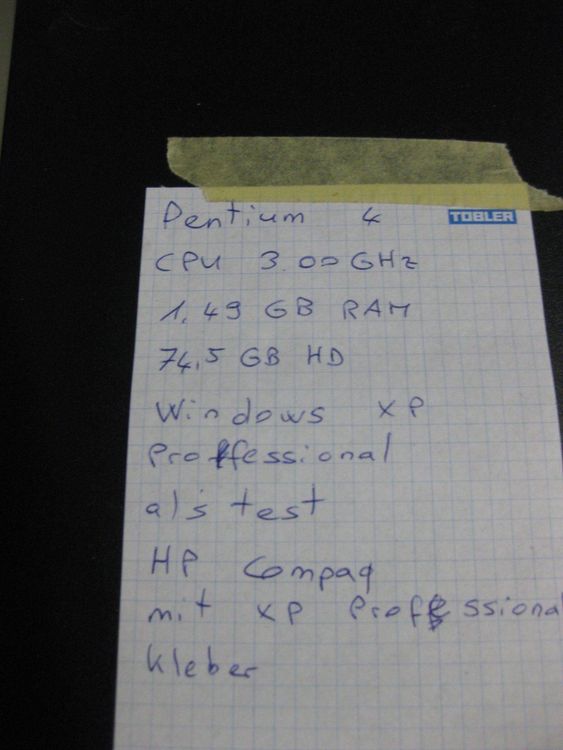 Pentium 4
TOBLER
CPU 3.00 GHz
1,49 GB RAM
74,5 GB HD
Windows XP
Proffessional
als test
HP Compaq
mit XP Proffessional
Kleber